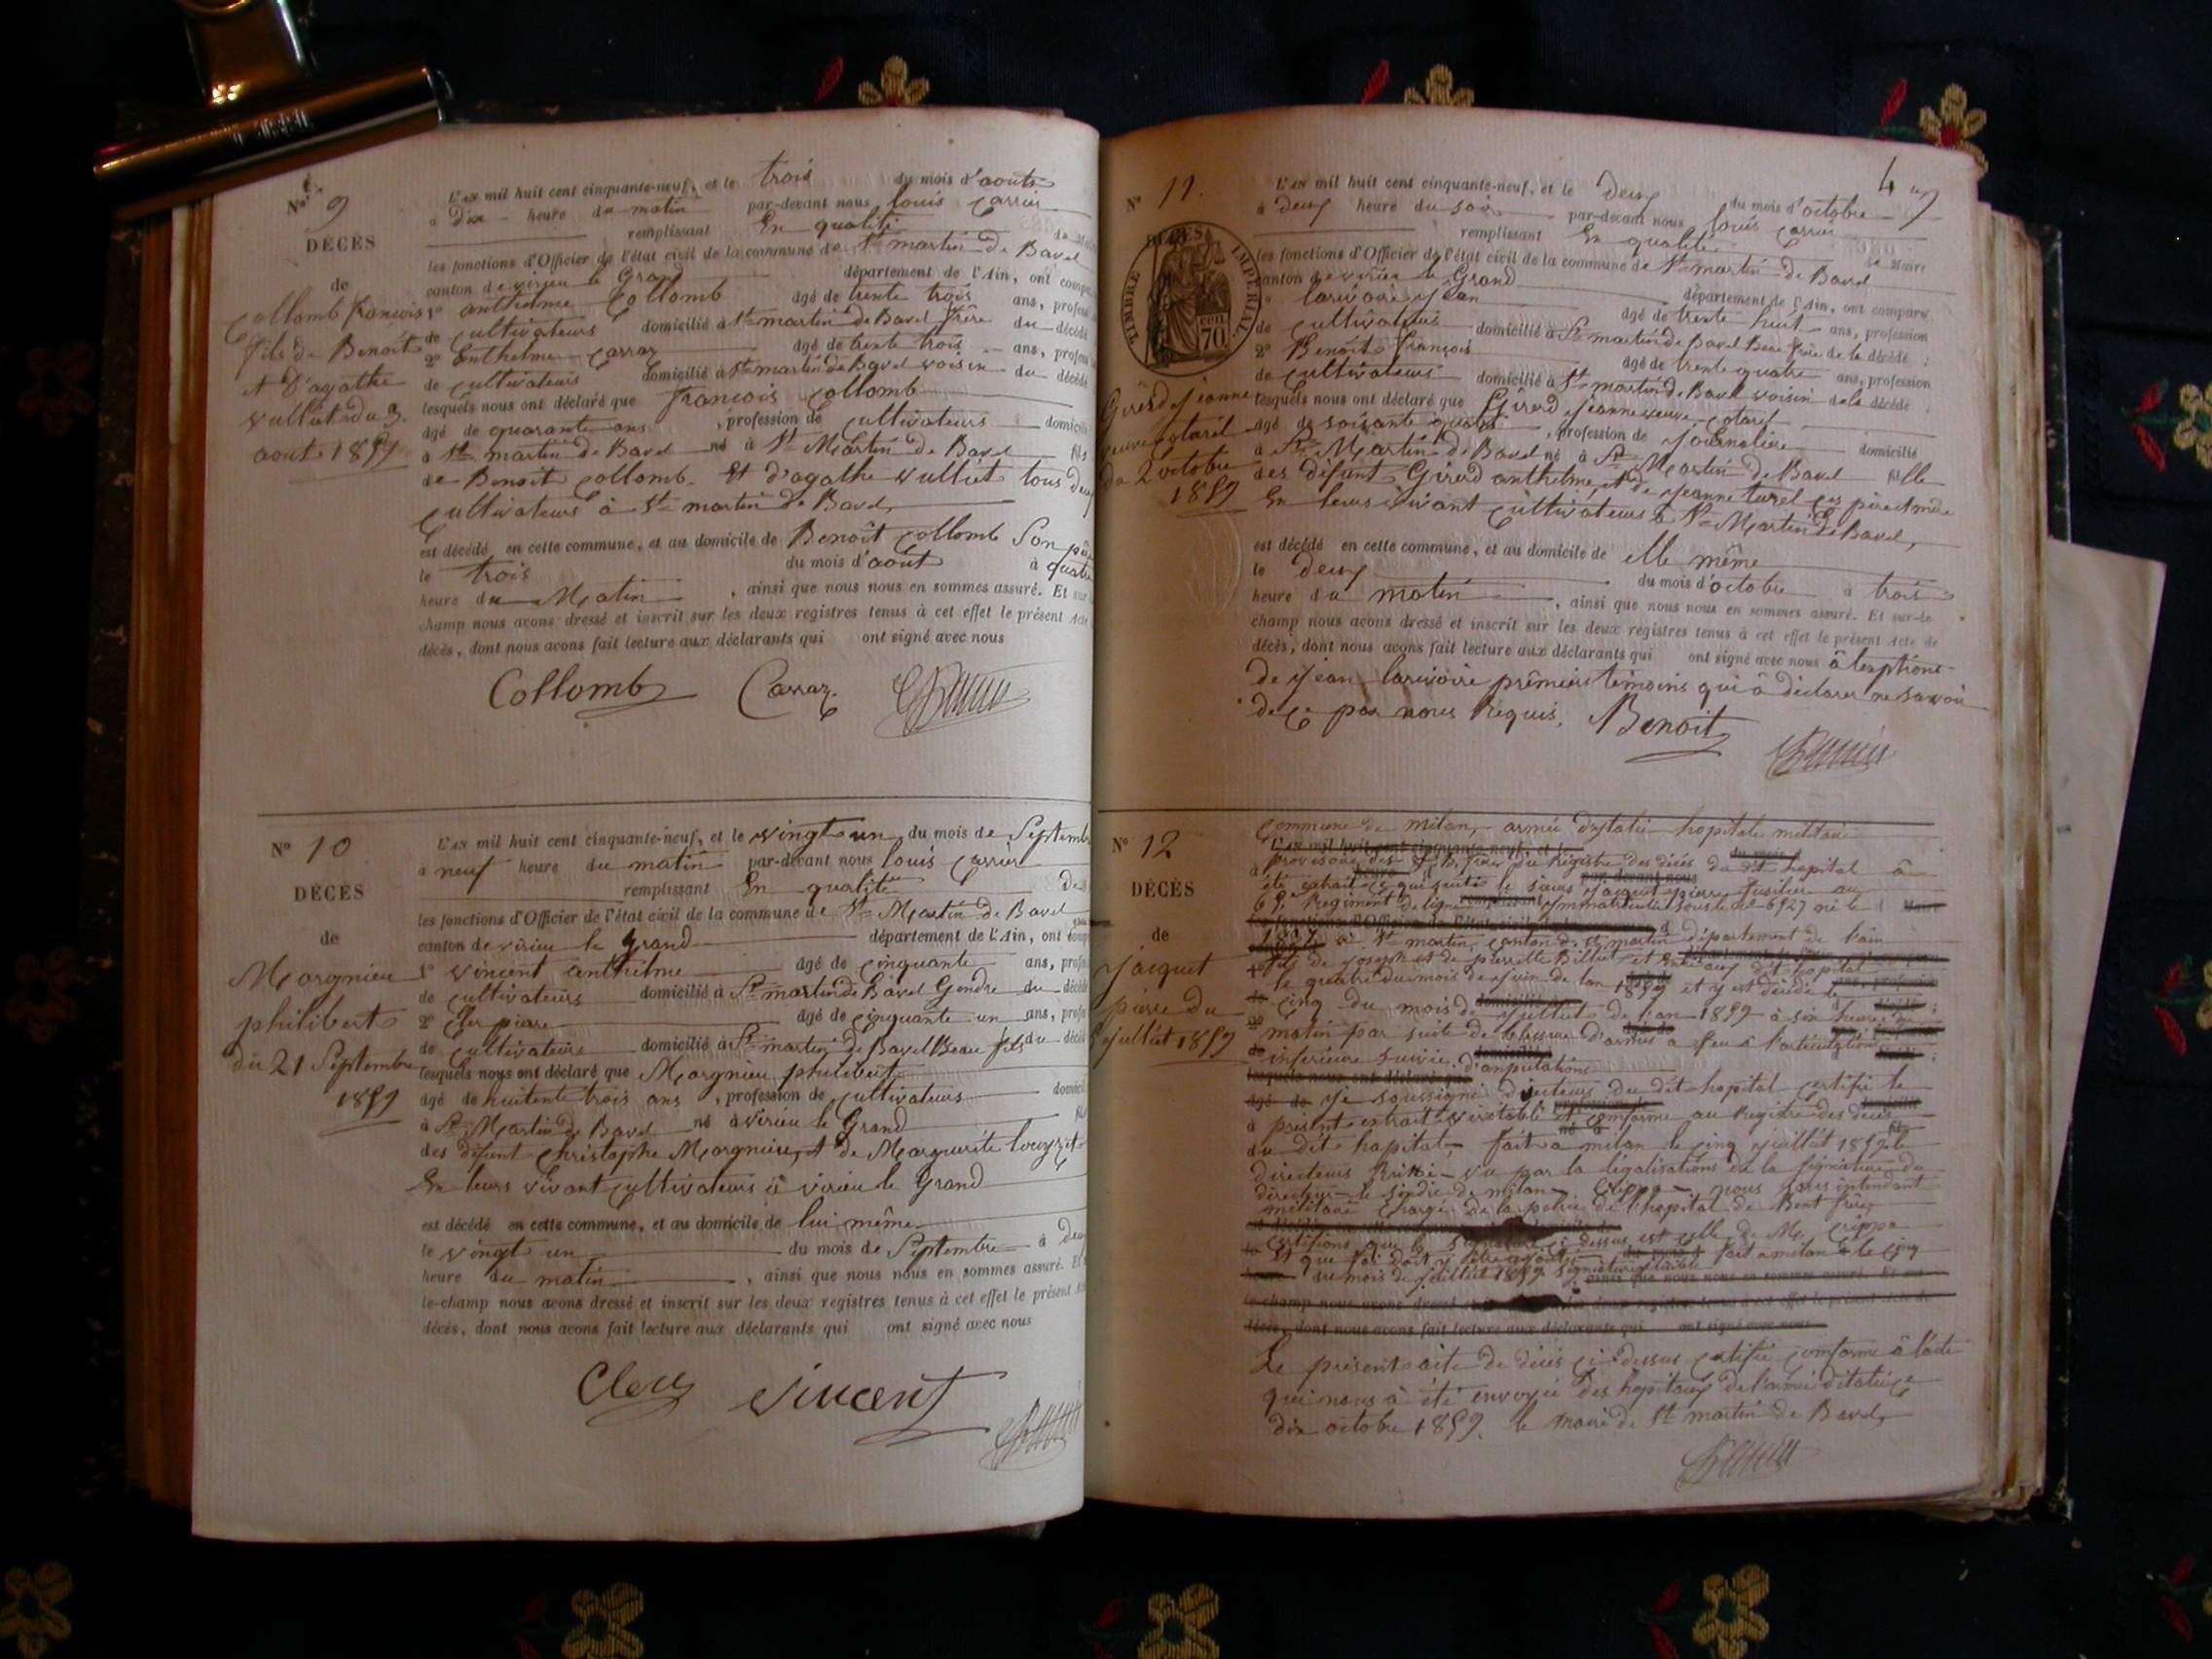 N° 9
DÉCÈS
de
Collomb françois
fils de Benoit
et d'agathe
vulliet du 3
aout 1859
L'AN mil huit cent cinquante-neuf, et le trois du mois d'aouts
à Dix heure du matin par-devant nous louis Carrier
remplissant En qualité de
les fonctions d'Officier de l'état civil de la commune de St martin De Bavel
canton de virieu le Grand département de l'Ain, ont comp
1° anthelme Collomb âgé de trente trois ans, profes
de Cultivateurs domicilié à St martin De Bavel frère du décédé
2° Enthelme Carraz âgé de trente trois ans, profes
de Cultivateurs domicilié à St martin De Bavel voisin du décédé
lesquels nous ont déclaré que françois Collomb
âgé de quarante ans, profession de Cultivateurs domicilié
à St martin De Bavel né à St Martin De Bavel fils
de Benoit Collomb Et d'agathe vulliet tous deux
Cultivateurs à St martin De Bavel,
est décédé en cette commune, et au domicile de Benoît Collomb Son père
le trois du mois d'août à quatre
heure du Matin, ainsi que nous nous en sommes assuré. Et sur
champ nous avons dressé et inscrit sur les deux registres tenus à cet effet le présent Acte
décès, dont nous avons fait lecture aux déclarants qui ont signé avec nous
Collomb Carraz
N° 10
DÉCÈS
de
Morgnieu
philibert
du 21 Septembre
1859
L'AN mil huit cent cinquante-neuf, et le vingt un du mois de Septemb
à neuf heure du matin par-devant nous louis Carrier
remplissant En qualité de
les fonctions d'Officier de l'état civil de la commune de St Martin De Bavel
canton de virieu le Grand département de l'Ain, ont comp
1° vincent anthelme âgé de cinquante ans, profes
de Cultivateurs domicilié à St martin De Bavel Gendre du décédé
2° Clerc piere âgé de cinquante un ans, profes
de Cultivateurs domicilié à St martin De Bavel Beau fils du décédé
lesquels nous ont déclaré que Morgnieu philibert
âgé de huitente trois ans, profession de Cultivateurs domicil
à St Martin De Bavel né à virieu le Grand
des défunt Christophe Morgnieu, et de Marguerite
En leurs vivant Cultivateurs à virieu le Grand
est décédé en cette commune, et au domicile de lui même
le vingt un du mois de Septembre à deux
heure du matin, ainsi que nous nous en sommes assuré. Et
le-champ nous avons dressé et inscrit sur les deux registres tenus à cet effet le présent
décès, dont nous avons fait lecture aux déclarants qui ont signé avec nous
Clerc vincent
4
N° 11.
TIMBRE IMPÉRIAL
70 cen.
Girerd Jeanne
veuve
du 2 octobre
1859
L'AN mil huit cent cinquante-neuf, et le Deux du mois d'octobre
à Deux heure du soir par-devant nous louis Carrier
remplissant En qualité de Maire
les fonctions d'Officier de l'état civil de la commune de St martin De Bavel
canton de virieu le Grand département de l'Ain, ont comparu
1° larivoire Jean âgé de trente huit ans, profession
de Cultivateurs domicilié à St martin De Bavel Beau frère de la décédé ;
2° Benoit françois âgé de trente quatre ans, profession
de Cultivateurs domicilié à St martin De Bavel voisin de la décédé ;
lesquels nous ont déclaré que Girerd Jeanne veuve
âgé de soisante quatre, profession de Journaliere domicilié
à St Martin De Bavel né à St Martin De Bavel fille
des défunt Girerd anthelme, et de Jeanne turel Ces père et mère
En leurs vivant Cultivateurs à St Martin De Bavel,
est décédé en cette commune, et au domicile de elle même
le Deux du mois d'octobre à trois
heure du matin, ainsi que nous nous en sommes assuré. Et sur-le
champ nous avons dressé et inscrit sur les deux registres tenus à cet effet le présent Acte de
décès, dont nous avons fait lecture aux déclarants qui ont signé avec nous à lexptions
de Jean larivoire prêmiers temoins qui à déclarer ne savoir
de Ce par nous Requis. Benoit
N° 12
DÉCÈS
de
Jaiquet
pierre du
5 juillet 1859
Commune de Milan, armée d'ytalie hopitale militaire
provisoire des du Registre des décés du dit hopital à
été extrait ce qui suit le sieurs Jaiquet pierre fusilier au
Regiment de ligne immatriculé sous le n° 6927 né le
à St martin, canton de St martin département de l'ain
fils de Joseph et de pierrette Billiet et entré aux dit hopital
le quatre du mois de Juin de l'an 1859 et y est décédé le
Cinq du mois de Juillet de l'an 1859 à six heure du
matin par suite de blessure d'armes à feu à l'articulation
inferieure suivie d'amputation
Je soussigné directeurs du dit hopital certifié le
présent extrait véritable et Conforme au Registre des décés
du dit hopital, fait à milan le cinq Juillet 1859 le
directeurs vu par la légalisations de la signature du
directeur le sindic de milan Crippa nous sous intendant
militaire Chargé de la police de l'hopital de Bent frères
Certifions que la signature Ci dessus est celle de Mr Crippa
et que foi doit y être ajoutée fait à milan le cinq
du mois de Juillet 1859
Le présent acte de décés Ci-dessus Certifié Conforme à l'acte
qui nous à été envoyé des hopitaux de l'armée d'italie
dix octobre 1859. le maire de St martin de Bavel